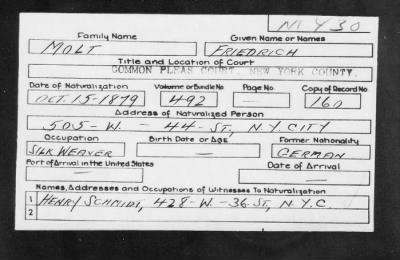 N 430
Family Name Given Name or Names
MOLT FRIEDRICH
Title and Location of Court
COMMON PLEAS COURT, NEW YORK COUNTY.
Date of Naturalization Volume or Bundle No Page No. Copy of Record No
OCT. 15-1879 492 — 160
Address of Naturalized Person
505-W-44-ST, N.Y. CITY
Occupation Birth Date or Age Former Nationality
SILK WEAVER — GERMAN
Port of Arrival in the United States Date of Arrival
— —
Names, Addresses and Occupations of Witnesses To Naturalization
1 HENRY SCHMIDT, 428-W-36-ST, N.Y.C.
2